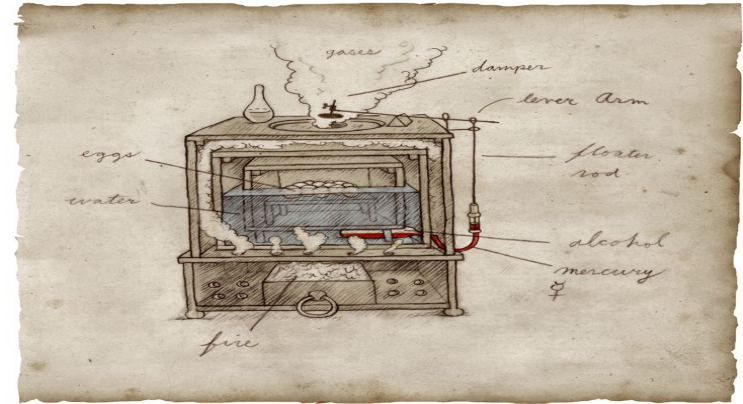 gases
damper
lever arm
eggs
floater
rod
water
alcohol
mercury
☿
fire